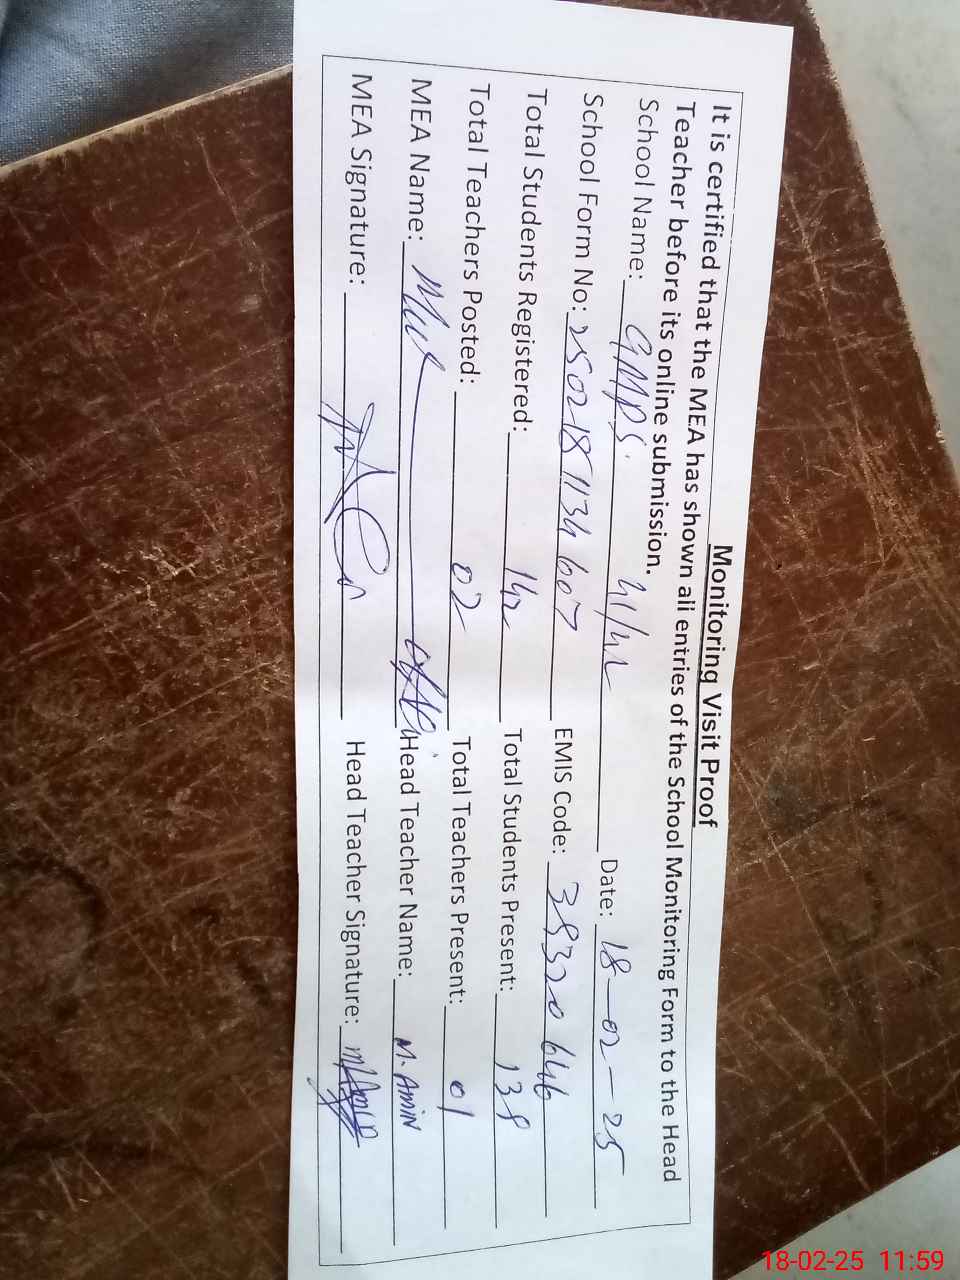 Monitoring Visit Proof
It is certified that the MEA has shown all entries of the School Monitoring Form to the Head
Teacher before its online submission.
School Name: GMPS. 4/4L Date: 18-02-25
School Form No: 2502181134607 EMIS Code: 38320646
Total Students Registered: 142 Total Students Present: 138
Total Teachers Posted: 02 Total Teachers Present: 01
MEA Name: Head Teacher Name: M. AMIN
MEA Signature: Head Teacher Signature:
18-02-25 11:59